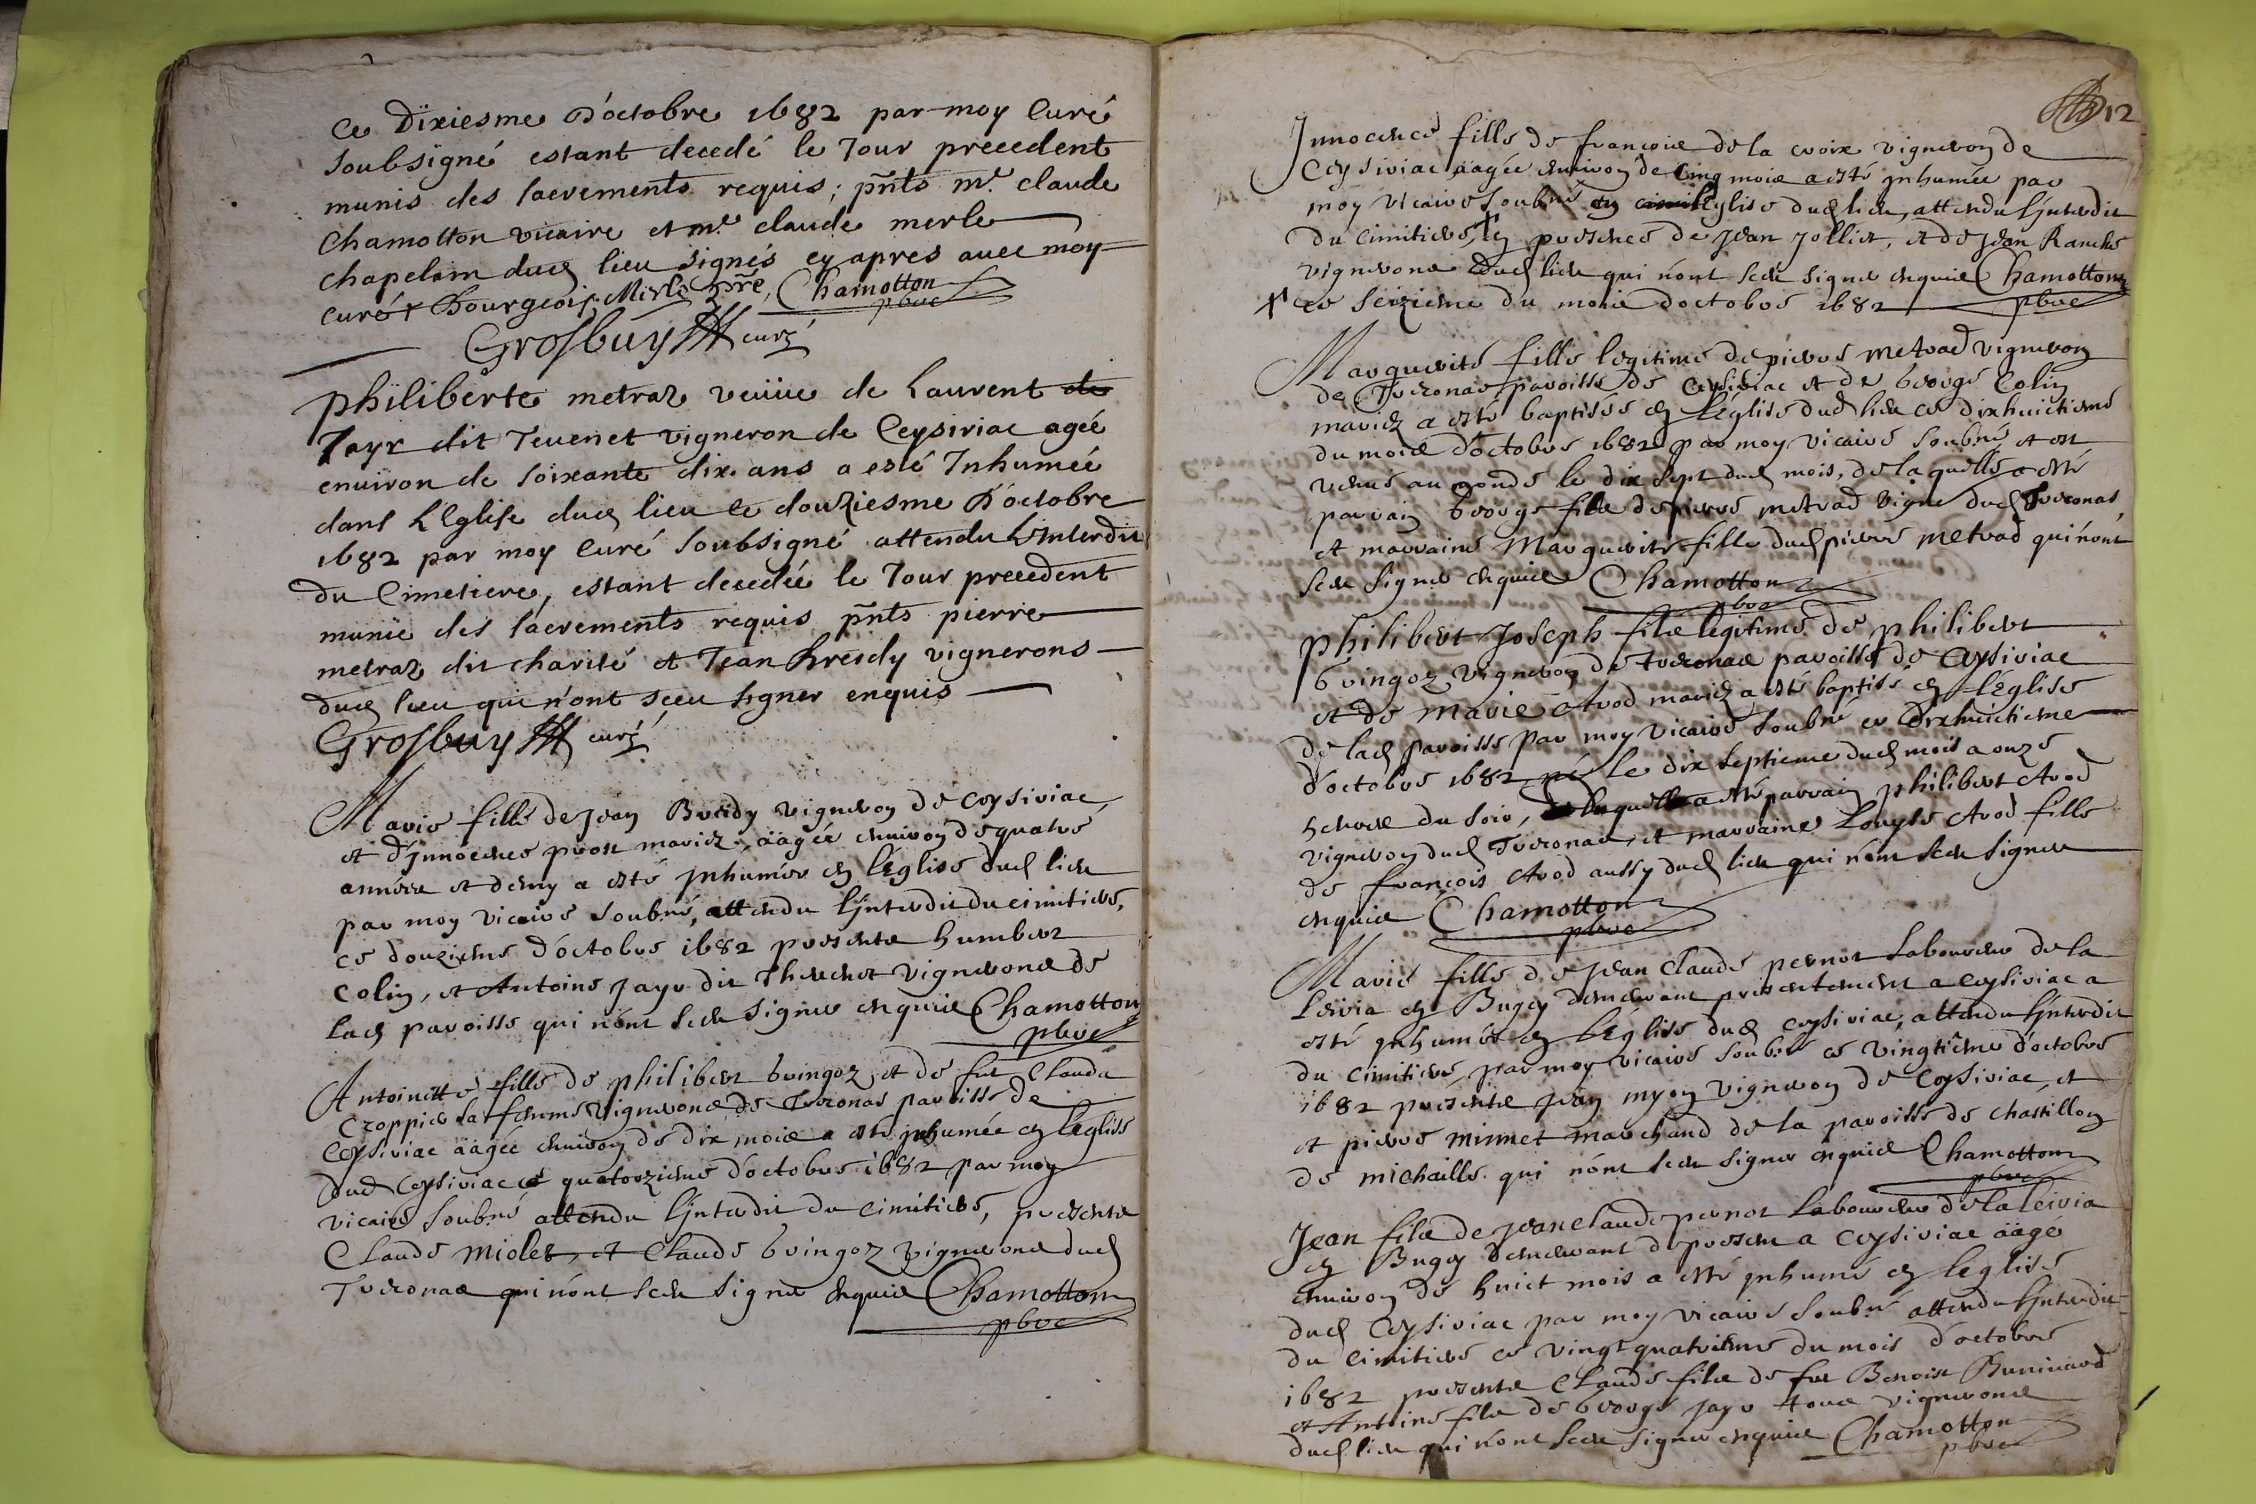 ce dixiesme d'octobre 1682 par moy curé
soubsigné estant decedé le Jour precedent
munis des sacrements requis; pñts mre. claude
Chamotton vicaire et mre claude merle
chapelain dud lieu signés cy apres avec moy
curé + Bourgeois. Merle p̃re, Chamotton pbre
Grosbuy curé
philiberte metraz veuve de Laurent de
Jayr dit Tevenet vigneron de Ceysiriac agée
environ de soixante dix ans a esté Inhumée
dans L'Eglise dud lieu ce douziesme D'octobre
1682 par moy Curé soubsigné attendu L'Interdit
du Cimetiere, estant decedée le Jour precedent
munie des sacrements requis pñts pierre
metraz dit charité et Jean Breidy vignerons
dud lieu qui n'ont sceu signer enquis
Grosbuy curé
Marie fille de Jean Breidy vigneron de Ceysiriac,
et d'Jnnocence prost mariez, äagée environ de quatre
années et demy a esté jnhumée en l'Eglise dud lieu
par moy vicaire soubné, attendu l'jnterdit du cimitiere,
ce douzieme d'octobre 1682 presents humbert
Colin, et Antoine Jayr dit Thevenet vignerons de
lad paroisse qui n'ont sceu signer enquis Chamotton
pbre
Antoinette fille de philibert bringoz et de fut Clauda
Croppier sa femme vignerons de Treconas paroisse de
Ceysiriac äagée environ de dix mois a esté jnhumée en l'eglise
dud Ceysiriac ce quatorzieme d'octobre 1682 par moy
vicaire soubné attendu l'jnterdit du cimitiere, presents
Claude Miolet, et Claude bringoz vignerons dud
Treconas qui n'ont sceu signer enquis Chamotton
pbre
12
Jnnocence fille de françois de la croix vigneron de
Ceysiriac äagée environ de cinq mois a esté jnhumée par
moy vicaire soubné en l'Eglise dud lieu, attendu l'jnterdit
du cimitiere, + en presence de Jean Jollier, et de Jean Ranche
vignerons dud lieu qui n'ont sceu signer enquis Chamotton
+ ce seizieme du mois d'octobre 1682 pbre
Marguerite fille legitime de pierre Metrad vigneron
de Treconas paroisse de Ceysiriac et de George Colin
mariez a esté baptisée en l'église dud lieu ce dixhuictieme
du mois d'octobre 1682 par moy vicaire soubné, et est
venue au monde le dix sept dud mois, de laquelle a esté
parrain George fils de pierre metrad vigne. dud Treconas,
et marraine Marguerite fille dud pierre metrad qui n'ont
sceu signer enquis Chamotton
pbre
philibert Joseph fils legitime de philibert
bringoz vigneron de Treconas paroisse de Ceysiriac
et de Marie Avod mariez a esté baptisé en l'Eglise
de lad paroisse par moy vicaire soubné ce dixhuictieme
d'octobre 1682 né le dix septieme dud mois a onze
heures du soir, a esté parrain philibert Avod
vigneron dud Treconas, et marraine Louyse Avod fille
de françois Avod aussy dud lieu qui n'ont sceu signer
enquis Chamotton
pbre
Marie fille de Jean Claude pernot Laboureur de la
Leivia en Bugey demeurant presentement a Ceysiriac a
esté jnhumée en l'Église dud Ceysiriac, attendu l'jnterdit
du cimitiere, par moy vicaire soubné ce vingtieme d'octobre
1682 presents Jean myon vigneron de Ceysiriac, et
et pierre minnet marchand de la paroisse de Chastillon
de michaille qui n'ont sceu signer enquis Chamotton
pbre
Jean fils de Jean Claude pernot Laboureur de la Leivia
en Bugey demeurant de present a Ceysiriac äagé
environ de huict mois a esté jnhumé en l'eglise
dud Ceysiriac par moy vicaire soubné attendu l'jnterdit
du cimitiere ce vingt quatrieme du mois d'octobre
1682 presents Claude fils de fut Benoist Brunivard
et Antoine fils de George Jayr tous vignerons
dud lieu qui n'ont sceu signer enquis Chamotton
pbre